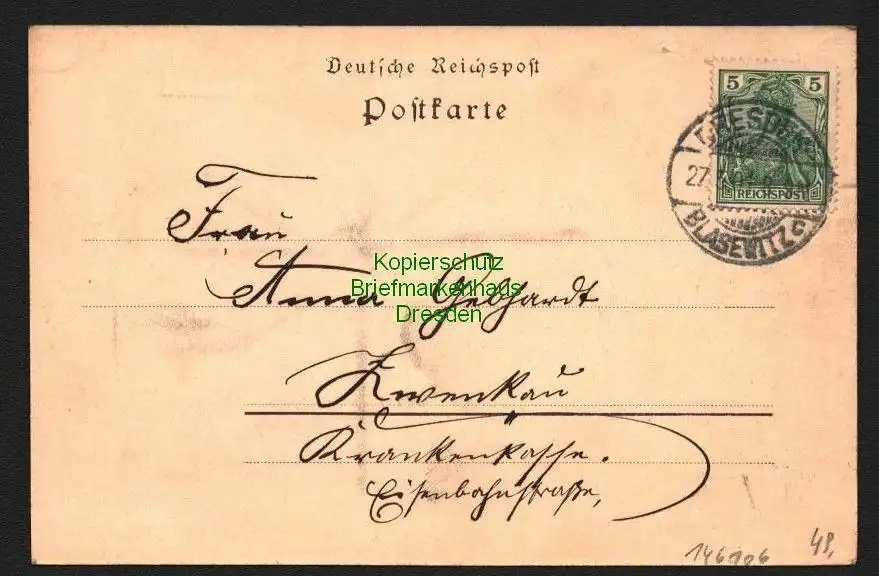 Deutsche Reichspost
Postkarte
5 5
REICHSPOST
DRESDEN
27.
BLASEWITZ
Frau
Anna Gebhardt
Zwenkau
Krankenkasse.
Eisenbahnstraße,
Kopierschutz
Briefmarkenhaus
Dresden
146906
48,